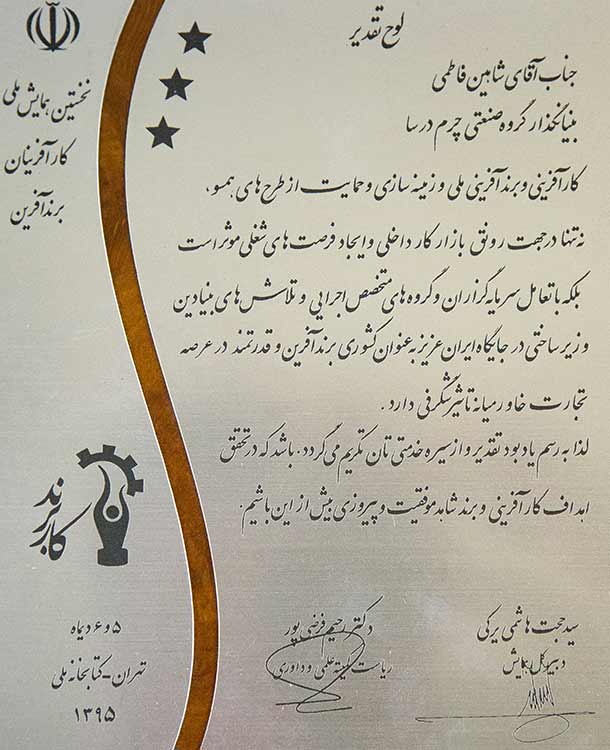 لوح تقدیر
جناب آقای شاهین فاطمی
بنیانگذار گروه صنعتی چرم درسا
کارآفرینی و برندآفرینی ملی و زمینه سازی و حمایت از طرح های همسو،
نه تنها در جهت رونق بازار کار داخلی و ایجاد فرصت های شغلی موثر است
بلکه با تعامل سرمایه گزاران و گروه های متخصص اجرایی و تلاش های بنیادین
و زیر ساختی در جایگاه ایران عزیز به عنوان کشوری برندآفرین و قدرتمند در عرصه
تجارت خاورمیانه تاثیر شگرفی دارد.
لذا به رسم یادبود تقدیر و از سیره خدمتی تان تکریم می گردد. باشد که در تحقق
اهداف کارآفرینی و برند شاهد موفقیت و پیروزی بیش از این باشیم.
سید حجت هاشمی یرکی
دبیر کل همایش
دکتر رحیم فرضی پور
ریاست کمیته علمی و داوری
نخستین همایش ملی
کارآفرینان
برندآفرین
کاربرند
۵ و ۶ دیماه
تهران - کتابخانه ملی
۱۳۹۵